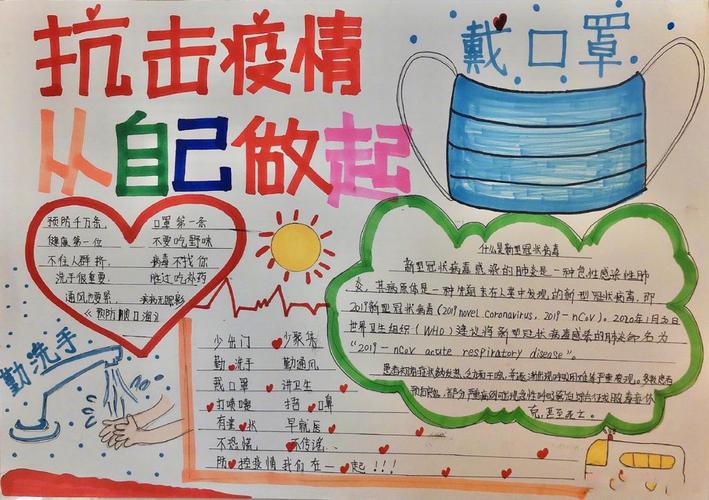 抗击疫情
从自己做起
戴口罩
预防千万条, 口罩第一条
健康第一位 不要吃野味
不往人群挤, 病毒不找你
洗手很重要, 胜过吃补药
通风 疾病无踪影
《预防顺口溜》
勤洗手
少出门 少聚集
勤洗手 勤通风
戴口罩 讲卫生
打喷嚏 捂口鼻
有症状 早就医
不恐慌, 不传谣
防控疫情我们在一起!!!
什么是新型冠状病毒
新型冠状病毒感染的肺炎是一种急性感染性肺
炎,其病原体是一种先前未在人类中发现的新型冠状病毒,即
2019新型冠状病毒(2019 novel coronavirus, 2019-nCoV)。2020年1月30日
世界卫生组织(WHO)建议将新型冠状病毒感染的肺炎命名为
"2019-nCoV acute respiratory disease"。
患者初始症状 发热、乏力和干咳,并逐渐出现呼吸困难等严重表现。多数患者
预后良好,部分严重病例
克,甚至死亡。